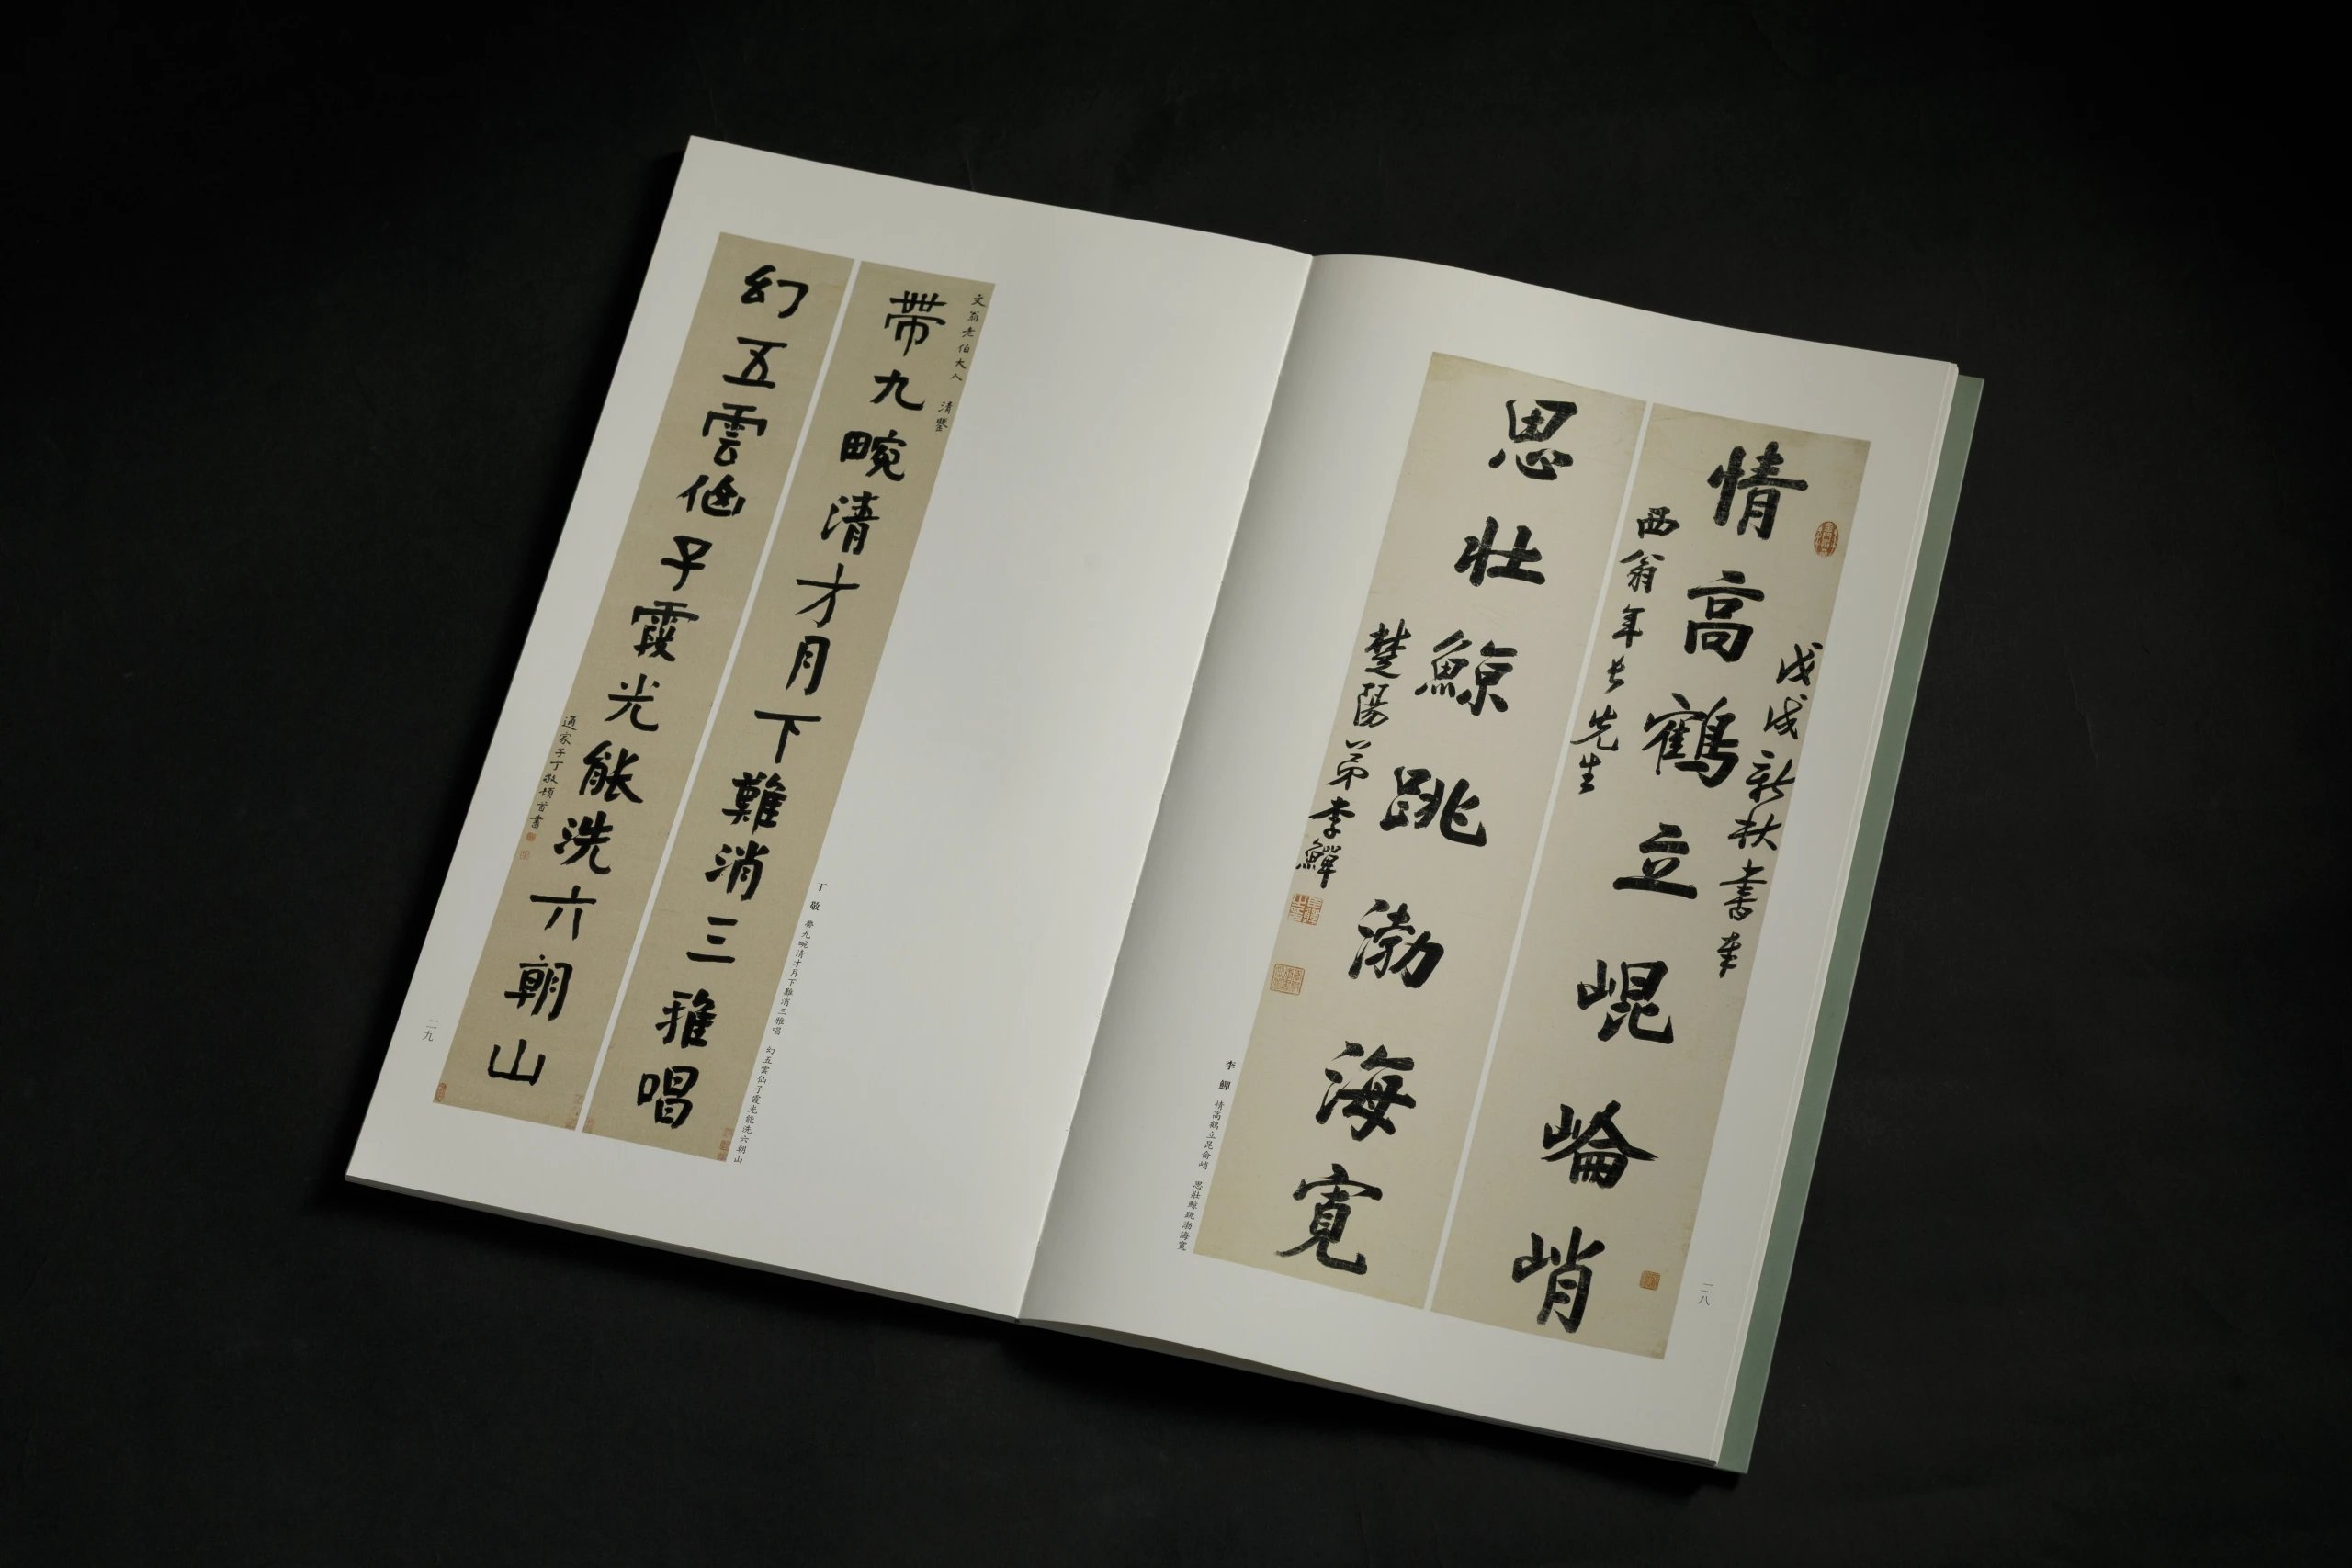 戊戌新秋書奉
情高鶴立崐崘峭
西翁年長先生
思壯鯨跳渤海寬
楚陽弟李鱓
李鱓 情高鶴立昆侖峭 思壯鯨跳渤海寬
二八
文翁老伯大人 清鑒
帶九畹清才月下難消三雅唱
幻五雲仙子霞光能洗六朝山
通家子丁敬頓首書
丁敬 帶九畹清才月下難消三雅唱 幻五雲仙子霞光能洗六朝山
二九